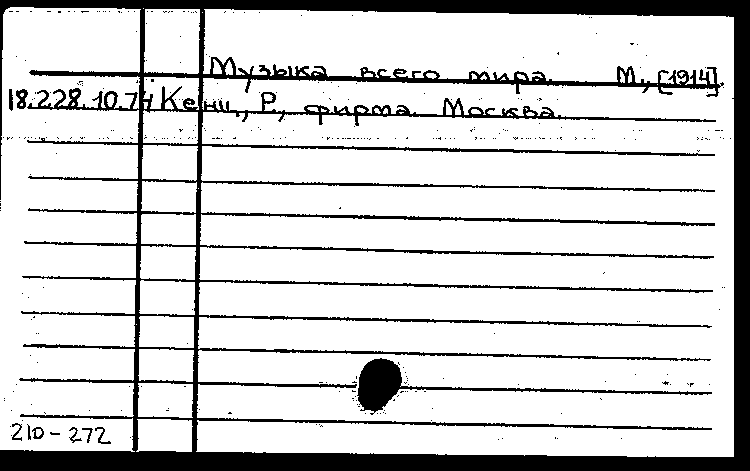 Музыка всего мира. М., [1914].
18.228.10.74 Кенц, Р., фирма. Москва.
210-272